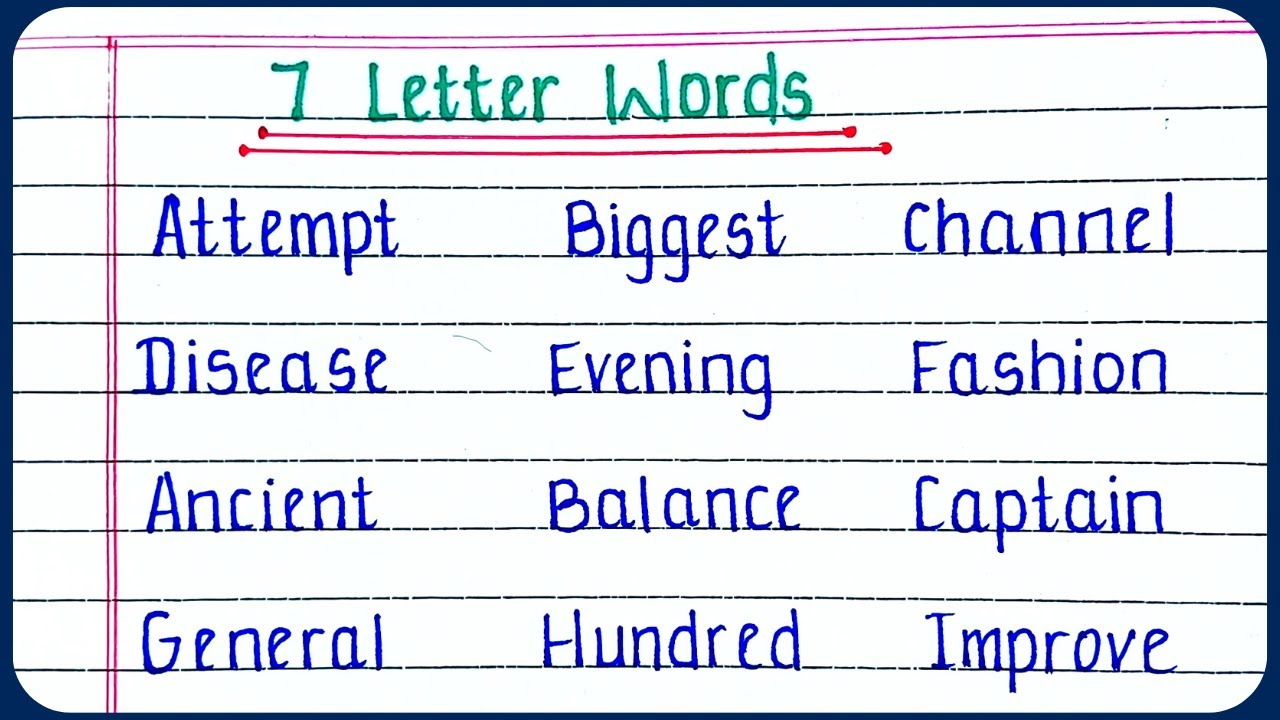 7 Letter Words
Attempt Biggest Channel
Disease Evening Fashion
Ancient Balance Captain
General Hundred Improve